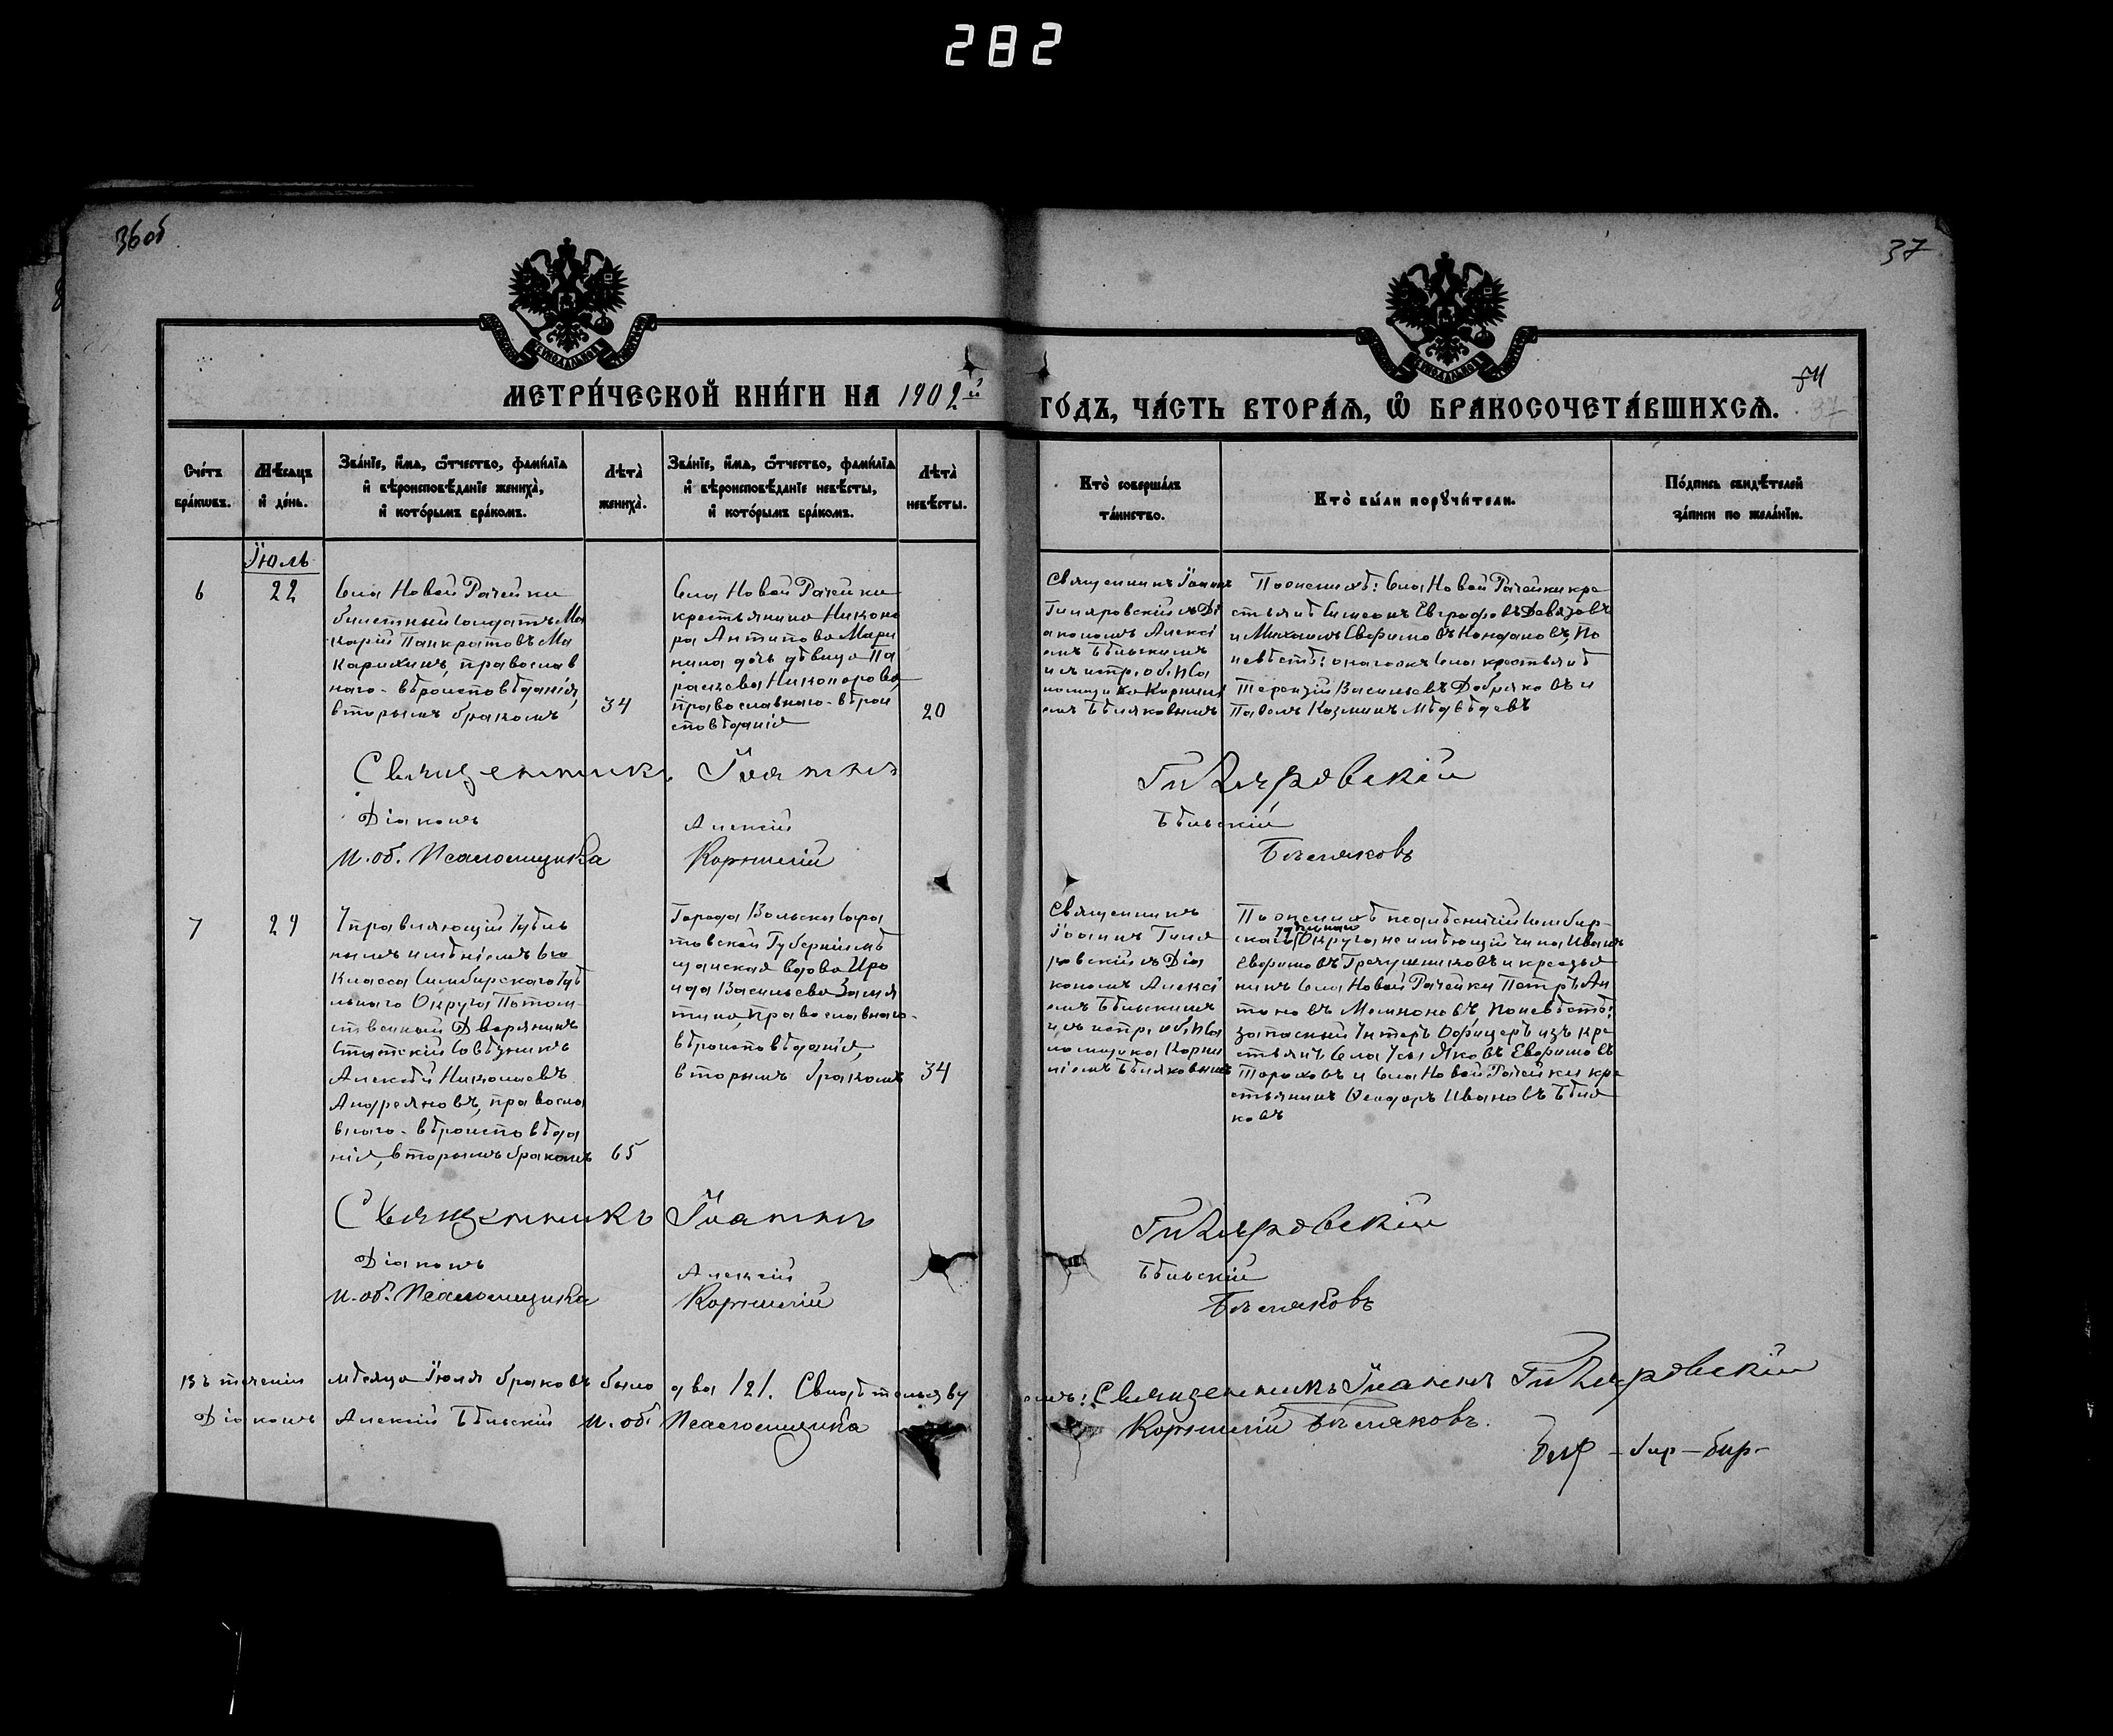 282
36об
37
МЕТРИ́ЧЕСКОЙ КНИ́ГИ НА 1902й ГО́ДЪ, ЧА́СТЬ ВТОРА́Я, Ѽ БРАКОСОЧЕТА́ВШИХСЯ.
37
Сче́тъ бра́кωвъ.
Мѣ́сяцъ и де́нь.
Зва́нїе, и́мя, ѻ҆́тчество, фами́лїа и҆ вѣроисповѣ́данїе жениха̀, и҆ кото́рымъ бра́комъ.
Лѣта̀ жениха̀.
Зва́нїе, и́мя, ѻ҆́тчество, фами́лїа и҆ вѣроисповѣ́данїе невѣ́сты, и҆ кото́рымъ бра́комъ.
Лѣта̀ невѣ́сты.
Кто̀ соверша́лъ та́инство.
Кто̀ бы́ли порꙋчи́тели.
По́дпись свидѣ́телей за́писи по жела́нїю.
Іюль
6
22
Села Новой Рачейки
билетный солдатъ Ма
карій Панкратовъ Ма
карихинъ, православ
наго-вѣроисповѣданія,
вторымъ бракомъ
34
Села Новой Рачейки
крестьянина Никано
ра Антипова Мари
нина дочь дѣвица Па
раскева Никонорова,
православнаго-вѣрои
сповѣданія
20
Священникъ Іоаннъ
Гиляровскій съ Ді
акономъ Алексі
емъ Бѣльскимъ
и съ испр. об. Пса
ломщика Корнилі
емъ Бѣляковымъ
По женихѣ: Села Новой Рачейки кре
стьянѣ Симеонъ Евграфовъ Девязовъ
и Михаилъ Евфимовъ Кондаковъ, По
невѣстѣ: онагожъ села крестьянѣ
Терентій Васильевъ Добряковъ и
Павелъ Козминъ Мѣдвѣдевъ
Священникъ Іоаннъ Гиляровскій
Діаконъ Алексій Бѣльскій
И. об. Псаломщика Корнилій Бѣляковъ
7
29
Управляющій Удѣль
нымъ имѣніемъ 6го
класса Симбирскаго Удѣ
льнаго Округа Потом-
ственный Дворянинъ
Статскій Совѣтникъ
Алексѣй Николаевъ
Андреяновъ, правосла
внаго-вѣроисповѣда
нія, вторымъ бракомъ
65
Города Вольска Сара
товской Губерніи мѣ
щанская вдова Ира
ида Васильева Замя
тина, православнаго-
вѣроисповѣданія,
вторымъ бракомъ
34
Священникъ
Іоаннъ Гиля
ровскій съ Діа
кономъ Алексі
емъ Бѣльскимъ
и съ испр. об. Пса
ломщика Корни
ліемъ Бѣляковымъ
По женихѣ
удѣльнаго
Округа не имѣющій чина Иванъ
Евфимовъ Гречушниковъ и крестья
нинъ села Новой Рачейки Петръ Ан
тоновъ Мамоновъ По невѣстѣ:
запасный Унтеръ Офицеръ изъ кре
стьянъ села Усы Яковъ Евфимовъ
Тороховъ и села Новой Рачейки кре
стьянинъ Ѳеодоръ Ивановъ Бѣля
ковъ
Священникъ Іоаннъ Гиляровскій
Діаконъ Алексій Бѣльскій
И. об. Псаломщика Корнилій Бѣляковъ
Въ теченіи мѣсяца Іюля браковъ было два /2/. Свидѣтельству емъ: Священникъ Іоаннъ Гиляровскій
Діаконъ Алексій Бѣльскій И. об. Псаломщика Корнилій Бѣляковъ.